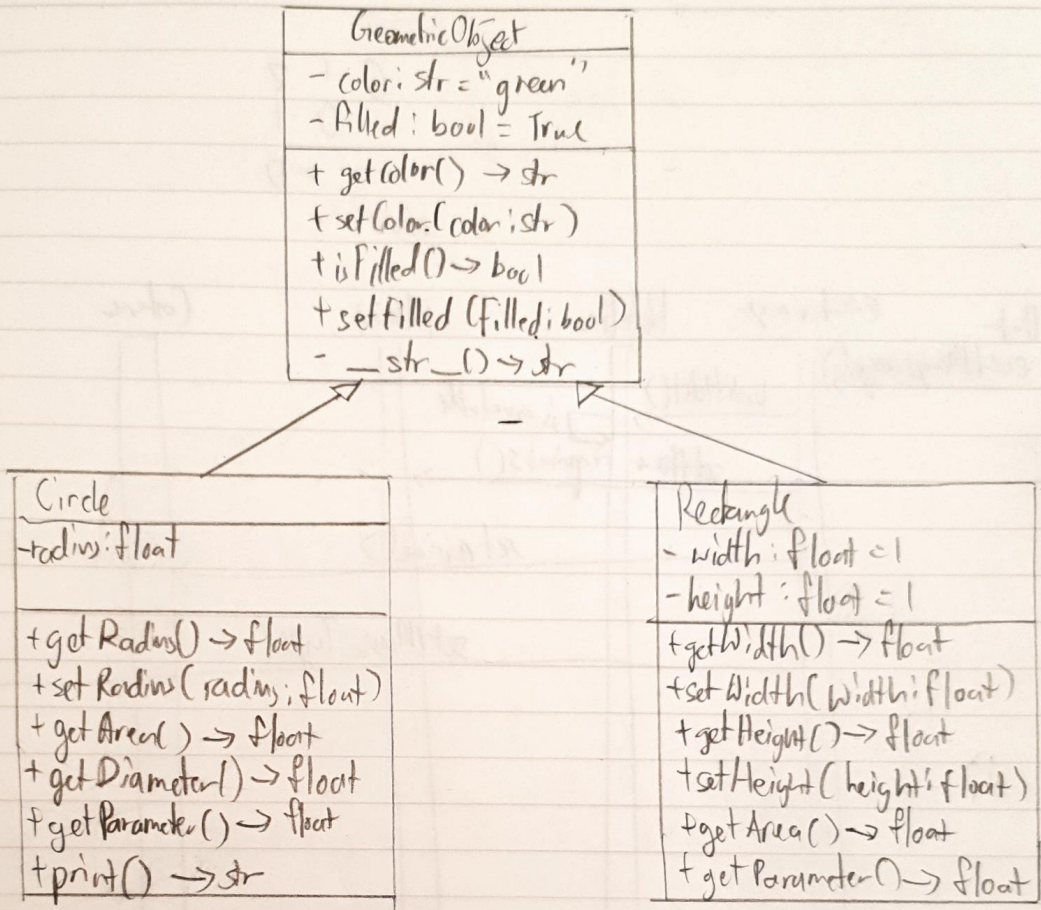 GeometricObject
- color: str = "green"
- filled: bool = True
+ getColor() → str
+ setColor(color: str)
+ isFilled() → bool
+ setFilled(filled: bool)
- __str_() → str
Circle
-radius: float
+getRadius() → float
+setRadius(radius: float)
+getArea() → float
+getDiameter() → float
+getParameter() → float
+print() → str
Rectangle
- width: float = 1
- height: float = 1
+getWidth() → float
+setWidth(width: float)
+getHeight() → float
+setHeight(height: float)
+getArea() → float
+getParameter() → float